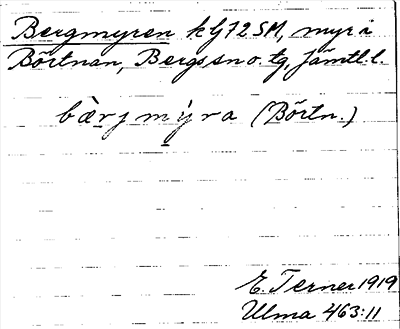 Bergmyren kg72SM, myr i
Börtnan, Bergs sn o. tg, Jämtl. l.
bæ̀rj mýra (Börtn.)
E. Terner 1919
Ulma 463:11